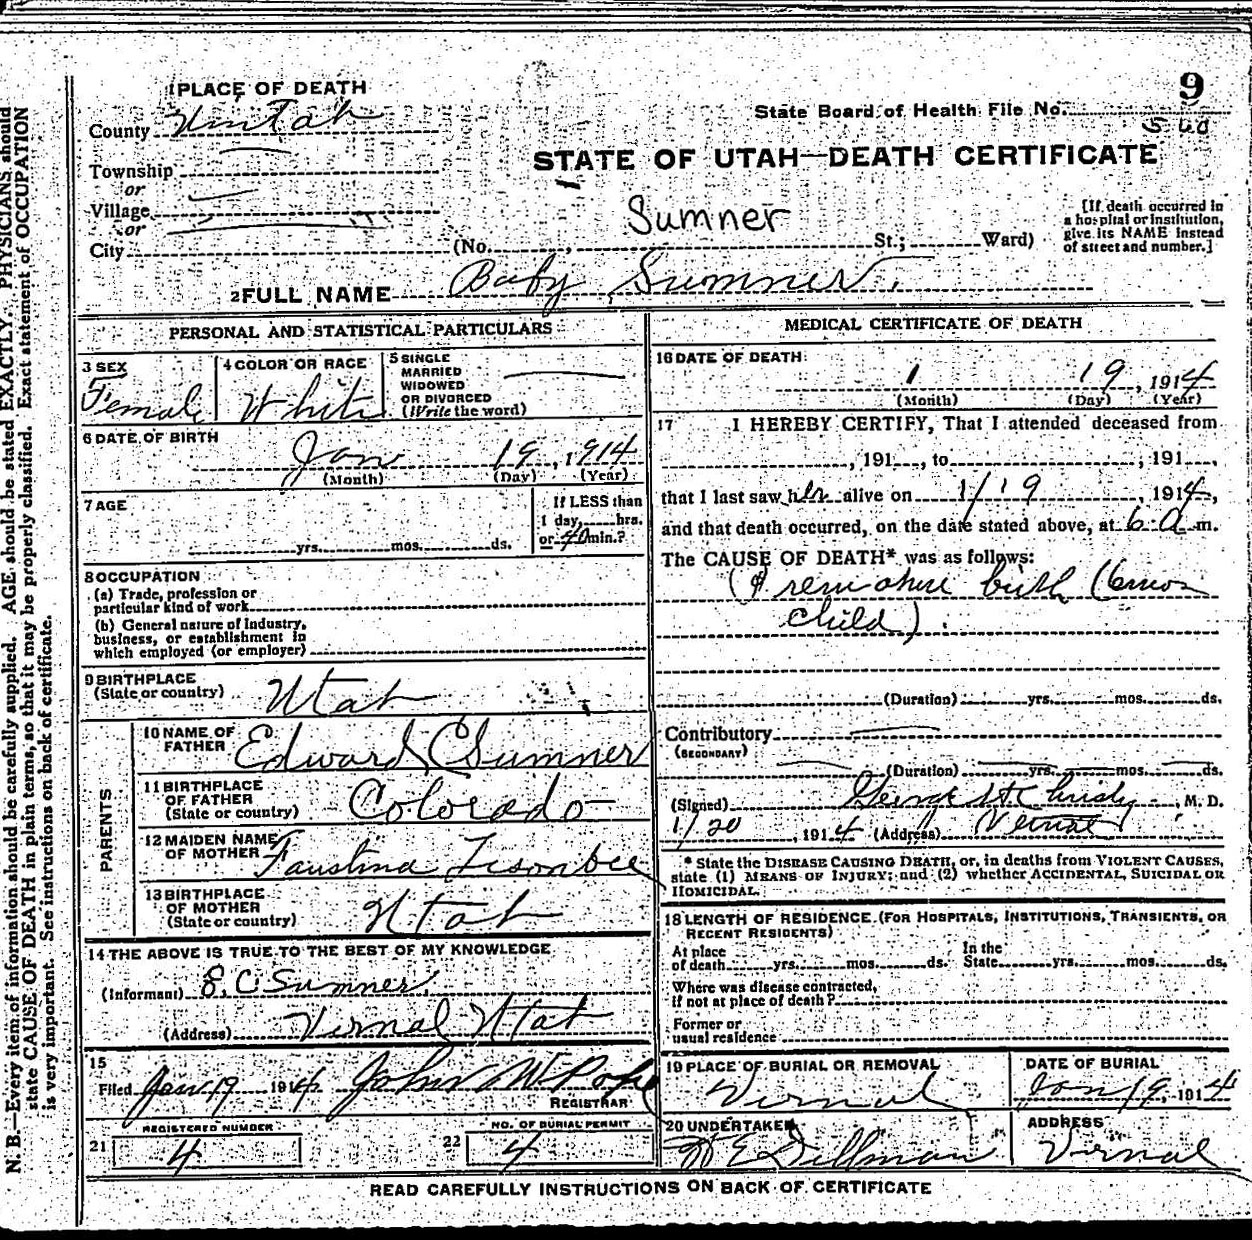 9
1 PLACE OF DEATH
State Board of Health File No.
County Uintah
STATE OF UTAH—DEATH CERTIFICATE
Township
or
Village
or
City
Sumner
(No. , St.; Ward)
[If death occurred in
a hospital or institution,
give its NAME instead
of street and number.]
2 FULL NAME Baby Sumner.
PERSONAL AND STATISTICAL PARTICULARS
3 SEX
Female
4 COLOR OR RACE
White
5 SINGLE
MARRIED
WIDOWED
OR DIVORCED
(Write the word)
6 DATE OF BIRTH
Jan 19, 1914
(Month) (Day) (Year)
7 AGE
yrs. mos. ds.
If LESS than
1 day, hrs.
or 40 min.?
8 OCCUPATION
(a) Trade, profession or
particular kind of work
(b) General nature of industry,
business, or establishment in
which employed (or employer)
9 BIRTHPLACE
(State or country)
Utah
PARENTS
10 NAME OF
FATHER
Edward C Sumner
11 BIRTHPLACE
OF FATHER
(State or country)
Colorado
12 MAIDEN NAME
OF MOTHER
Faustina Tisonbee
13 BIRTHPLACE
OF MOTHER
(State or country)
Utah
14 THE ABOVE IS TRUE TO THE BEST OF MY KNOWLEDGE
(Informant) E. C. Sumner
(Address) Vernal Utah
15
Filed Jan 19 1914 John W Pope
REGISTRAR
REGISTERED NUMBER
21 4
NO. OF BURIAL PERMIT
22 4
MEDICAL CERTIFICATE OF DEATH
16 DATE OF DEATH
1 19, 1914
(Month) (Day) (Year)
17 I HEREBY CERTIFY, That I attended deceased from
, 191 , to , 191 ,
that I last saw her alive on 1/19, 1914,
and that death occurred, on the date stated above, at 6 a m.
The CAUSE OF DEATH* was as follows:
(Premature birth (6 mos
child).
(Duration) yrs. mos. ds.
Contributory
(SECONDARY)
(Duration) yrs. mos. ds.
(Signed) George H Christy, M. D.
1/20, 1914 (Address) Vernal
* State the DISEASE CAUSING DEATH, or, in deaths from VIOLENT CAUSES,
state (1) MEANS OF INJURY; and (2) whether ACCIDENTAL, SUICIDAL OR
HOMICIDAL.
18 LENGTH OF RESIDENCE (FOR HOSPITALS, INSTITUTIONS, TRANSIENTS, OR
RECENT RESIDENTS)
At place
of death yrs. mos. ds.
In the
State yrs. mos. ds.
Where was disease contracted,
if not at place of death?
Former or
usual residence
19 PLACE OF BURIAL OR REMOVAL
Vernal
DATE OF BURIAL
Jan 19, 1914
20 UNDERTAKER
W E Dillman
ADDRESS
Vernal
READ CAREFULLY INSTRUCTIONS ON BACK OF CERTIFICATE
N. B.—Every item of information should be carefully supplied. AGE should be stated EXACTLY. PHYSICIANS should
state CAUSE OF DEATH in plain terms, so that it may be properly classified. Exact statement of OCCUPATION
is very important. See instructions on back of certificate.